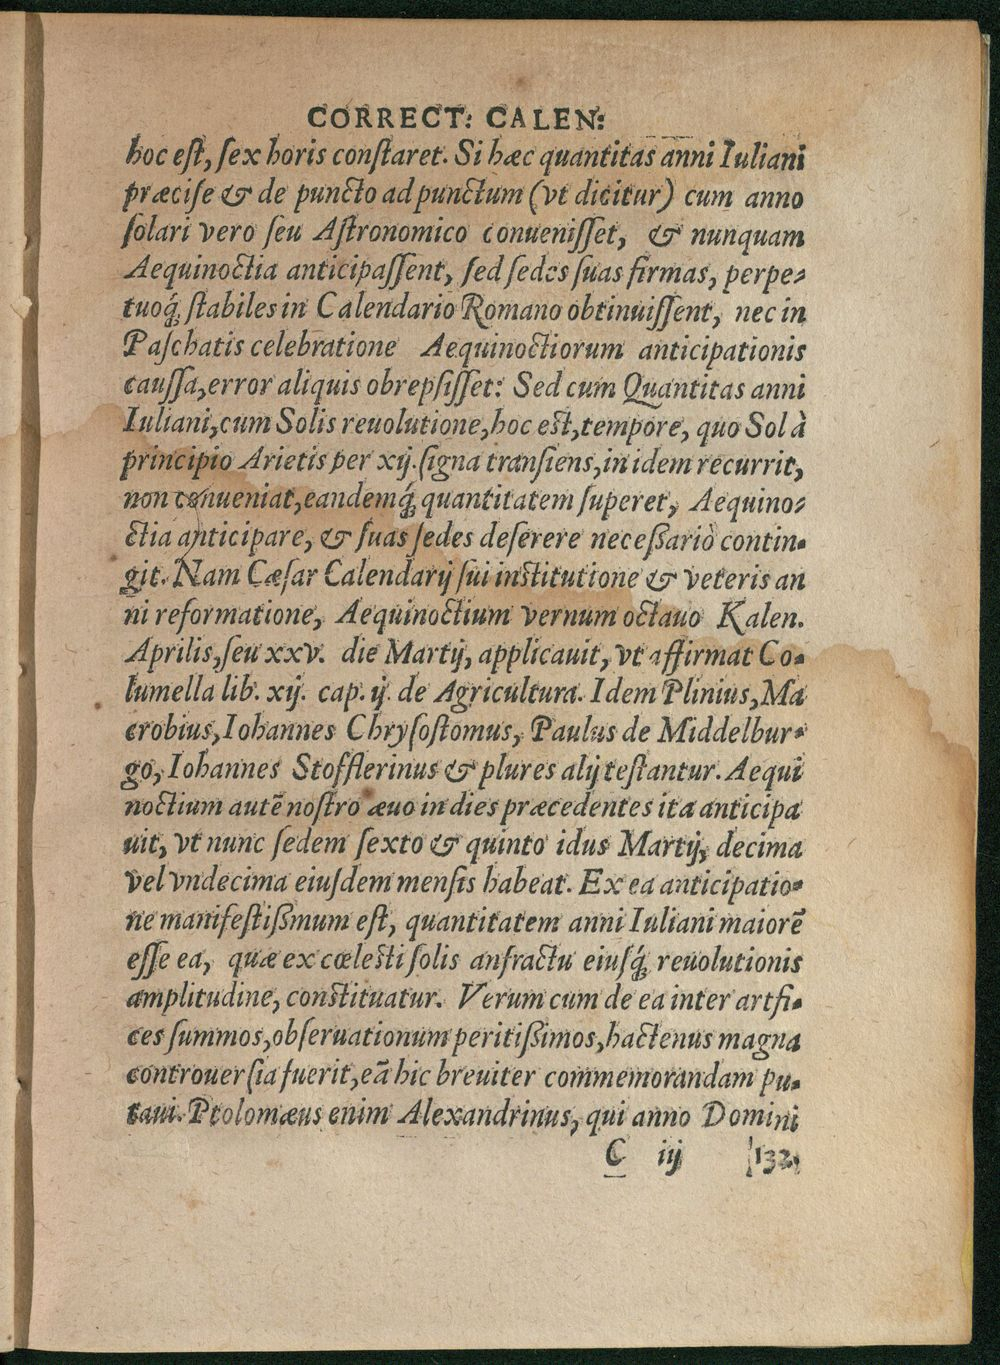 CORRECT: CALEN:
hoc eſt, ſex horis conſtaret. Si hæc quantitas anni Iuliani
præciſe & de puncto ad punctum (vt dicitur) cum anno
ſolari vero ſeu Aſtronomico conueniſſet, & nunquam
Aequinoctia anticipaſſent, ſed ſedes ſuas firmas, perpe-
tuoq́; ſtabiles in Calendario Romano obtinuiſſent, nec in
Paſchatis celebratione Aequinoctiorum anticipationis
cauſſa, error aliquis obrepſiſſet: Sed cum Quantitas anni
Iuliani, cum Solis reuolutione, hoc eſt, tempore, quo Sol à
principio Arietis per xij. ſigna tranſiens, in idem recurrit,
non conueniat, eandemq́; quantitatem ſuperet, Aequino-
ctia anticipare, & ſuas ſedes deſerere neceßariò contin-
git. Nam Cæſar Calendarij ſui inſtitutione & veteris an
ni reformatione, Aequinoctium vernum octauo Kalen.
Aprilis, ſeu xxv. die Martij, applicauit, vt affirmat Co-
lumella lib. xij. cap. ij. de Agricultura. Idem Plinius, Ma
crobius, Iohannes Chryſoſtomus, Paulus de Middelbur-
go, Iohannes Stofflerinus & plures alij teſtantur. Aequi
noctium autē noſtro æuo in dies præcedentes ita anticipa
uit, vt nunc ſedem ſexto & quinto idus Martij, decima
vel vndecima eiuſdem menſis habeat. Ex ea anticipatio-
ne manifeſtißmum eſt, quantitatem anni Iuliani maiorē
eſſe ea, quæ ex cœleſti ſolis anfractu eiuſq́; reuolutionis
amplitudine, conſtituatur. Verum cum de ea inter artfi-
ces ſummos, obſeruationum peritißimos, hactenus magna
controuerſia fuerit, eā hic breuiter commemorandam pu-
taui. Ptolomæus enim Alexandrinus, qui anno Domini
C iij 132,